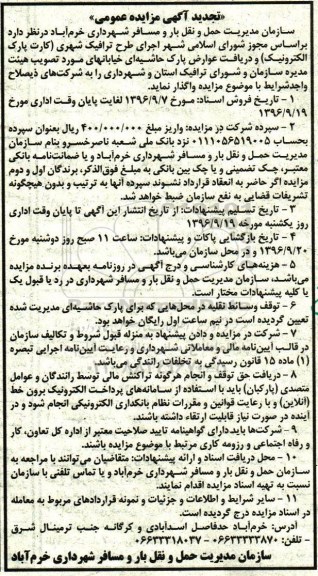 «تجدید آگهی مزایده عمومی»
سازمان مدیریت حمل و نقل بار و مسافر شهرداری خرم‌آباد درنظر دارد
براساس مجوز شورای اسلامی شهر اجرای طرح ترافیک شهری (کارت پارک
الکترونیک) و دریافت عوارض پارک حاشیه‌ای خیابانهای مورد تصویب هیئت
مدیره سازمان و شورای ترافیک استان و شهرداری را به شرکت‌های ذیصلاح
واجدشرایط با موضوع مزایده واگذار نماید.
۱ - تاریخ فروش اسناد: مورخ ۱۳۹۶/۹/۷ لغایت پایان وقت اداری مورخ
۱۳۹۶/۹/۱۹
۲ - سپرده شرکت در مزایده: واریز مبلغ ۴۰۰/۰۰۰/۰۰۰ ریال بعنوان سپرده
بحساب ۰۱۱۱۰۵۶۵۱۹۰۰۵ نزد بانک ملی شعبه ناصرخسرو بنام سازمان
مدیریت حمل و نقل بار و مسافر شهرداری خرم‌آباد و یا ضمانت‌نامه بانکی
معتبر، چک تضمینی و یا چک بین بانکی به مبلغ فوق‌الذکر، برندگان اول و دوم
مزایده اگر حاضر به انعقاد قرارداد نشوند سپرده آنها به ترتیب و بدون هیچگونه
تشریفات قضایی به نفع سازمان ضبط خواهد شد.
۳ - تاریخ تسلیم پیشنهادات: از تاریخ انتشار این آگهی تا پایان وقت اداری
روز یکشنبه مورخه ۱۳۹۶/۹/۱۹
۴ - تاریخ بازگشایی پاکات و پیشنهادات: ساعت ۱۱ صبح روز دوشنبه مورخ
۱۳۹۶/۹/۲۰ و در محل سازمان می‌باشد.
۵ - هزینه‌های کارشناسی و درج آگهی در روزنامه بعهده برنده مزایده
می‌باشد، سازمان مدیریت حمل و نقل بار و مسافر شهرداری در رد یا قبول یک
یا کلیه پیشنهادات مختار است.
۶ - توقف وسائط نقلیه در محل‌هایی که برای پارک حاشیه‌ای مدیریت شده
تعیین گردیده است در نیم ساعت اول رایگان خواهد بود.
۷ - شرکت در مزایده و دادن پیشنهاد به منزله قبول شروط و تکالیف سازمان
در قالب آیین‌نامه مالی و معاملاتی شهرداری و رعایت آیین‌نامه اجرایی تبصره
(۱) ماده ۱۵ قانون رسیدگی به تخلفات رانندگی می‌باشد.
۸ - دریافت حق توقف و انجام هرگونه تراکنش مالی توسط رانندگان و عوامل
متصدی (پارکبان) باید با استفاده از سامانه‌های پرداخت الکترونیک برون خط
(آنلاین) و با رعایت قوانین و مقررات نظام بانکداری الکترونیکی انجام شود و در
آینده در صورت نیاز قابلیت ارتقاء داشته باشند.
۹ - شرکت‌ها باید دارای گواهینامه تایید صلاحیت معتبر از اداره کل تعاون، کار
و رفاه اجتماعی و رزومه کاری مرتبط با موضوع مزایده باشند.
۱۰ - محل دریافت اسناد و ارائه پیشنهادات: متقاضیان می‌توانند با مراجعه به
سازمان حمل و نقل بار و مسافر شهرداری خرم‌آباد و یا تماس تلفنی با سازمان
نسبت به تهیه اسناد مزایده اقدام نمایند.
۱۱ - سایر شرایط و اطلاعات و جزئیات و نمونه قراردادهای مربوط به معامله
در اسناد مزایده درج گردیده است.
آدرس: خرم‌آباد حدفاصل اسدآبادی و کرگانه جنب ترمینال شرق
تلفن: ۰۶۶۳۳۳۳۲۸۷۰ - ۰۶۶۳۳۳۱۸۰۳۷
سازمان مدیریت حمل و نقل بار و مسافر شهرداری خرم‌آباد